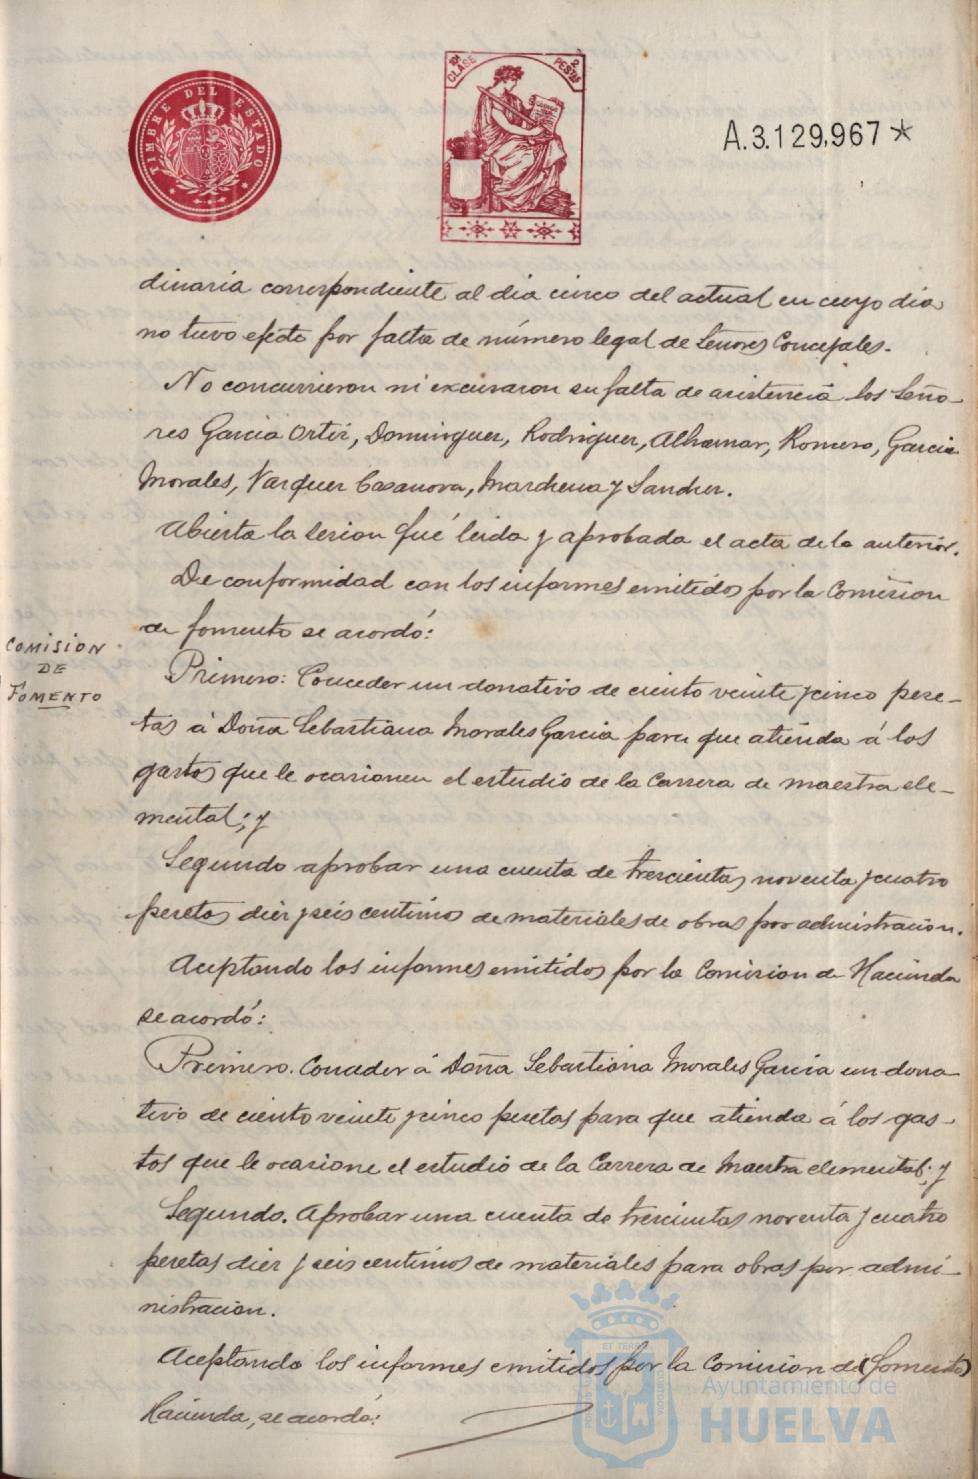 TIMBRE DEL ESTADO
10ª CLASE
2 PESTAS
A.3.129,967*
dinaria correspondiente al dia cinco del actual en cuyo dia
no tuvo efecto por falta de número legal de Señores Concejales.
No concurrieron ni excusaron su falta de asistencia los Seño-
res Garcia Ortiz, Dominguez, Rodriguez, Alhamar, Romero, Garcia
Morales, Vazquez Casanova, Marchena y Sanchez.
Abierta la sesion fué leida y aprobada el acta de la anterior.
De conformidad con los informes emitidos por la Comision
de fomento se acordó:
COMISION
DE
FOMENTO
Primero: Conceder un donativo de ciento veinte y cinco pese-
tas á Doña Sebastiana Morales Garcia para que atienda á los
gastos que le ocasionen el estudio de la Carrera de maestra ele-
mental; y
Segundo aprobar una cuenta de trescientas noventa y cuatro
pesetas diez y seis centimos de materiales de obras por administracion.
Aceptando los informes emitidos por la Comision de Hacienda
se acordó:
Primero. Conceder á Doña Sebastiana Morales Garcia un dona
tivo de ciento veinte y cinco pesetas para que atienda á los gas-
tos que le ocasione el estudio de la Carrera de Maestra elemental; y
Segundo. Aprobar una cuenta de trescientas noventa y cuatro
pesetas diez y seis centimos de materiales para obras por admi-
nistracion.
Aceptando los informes emitidos por la Comision de (Fomento)
Hacienda, se acordó:
Ayuntamiento de
HUELVA